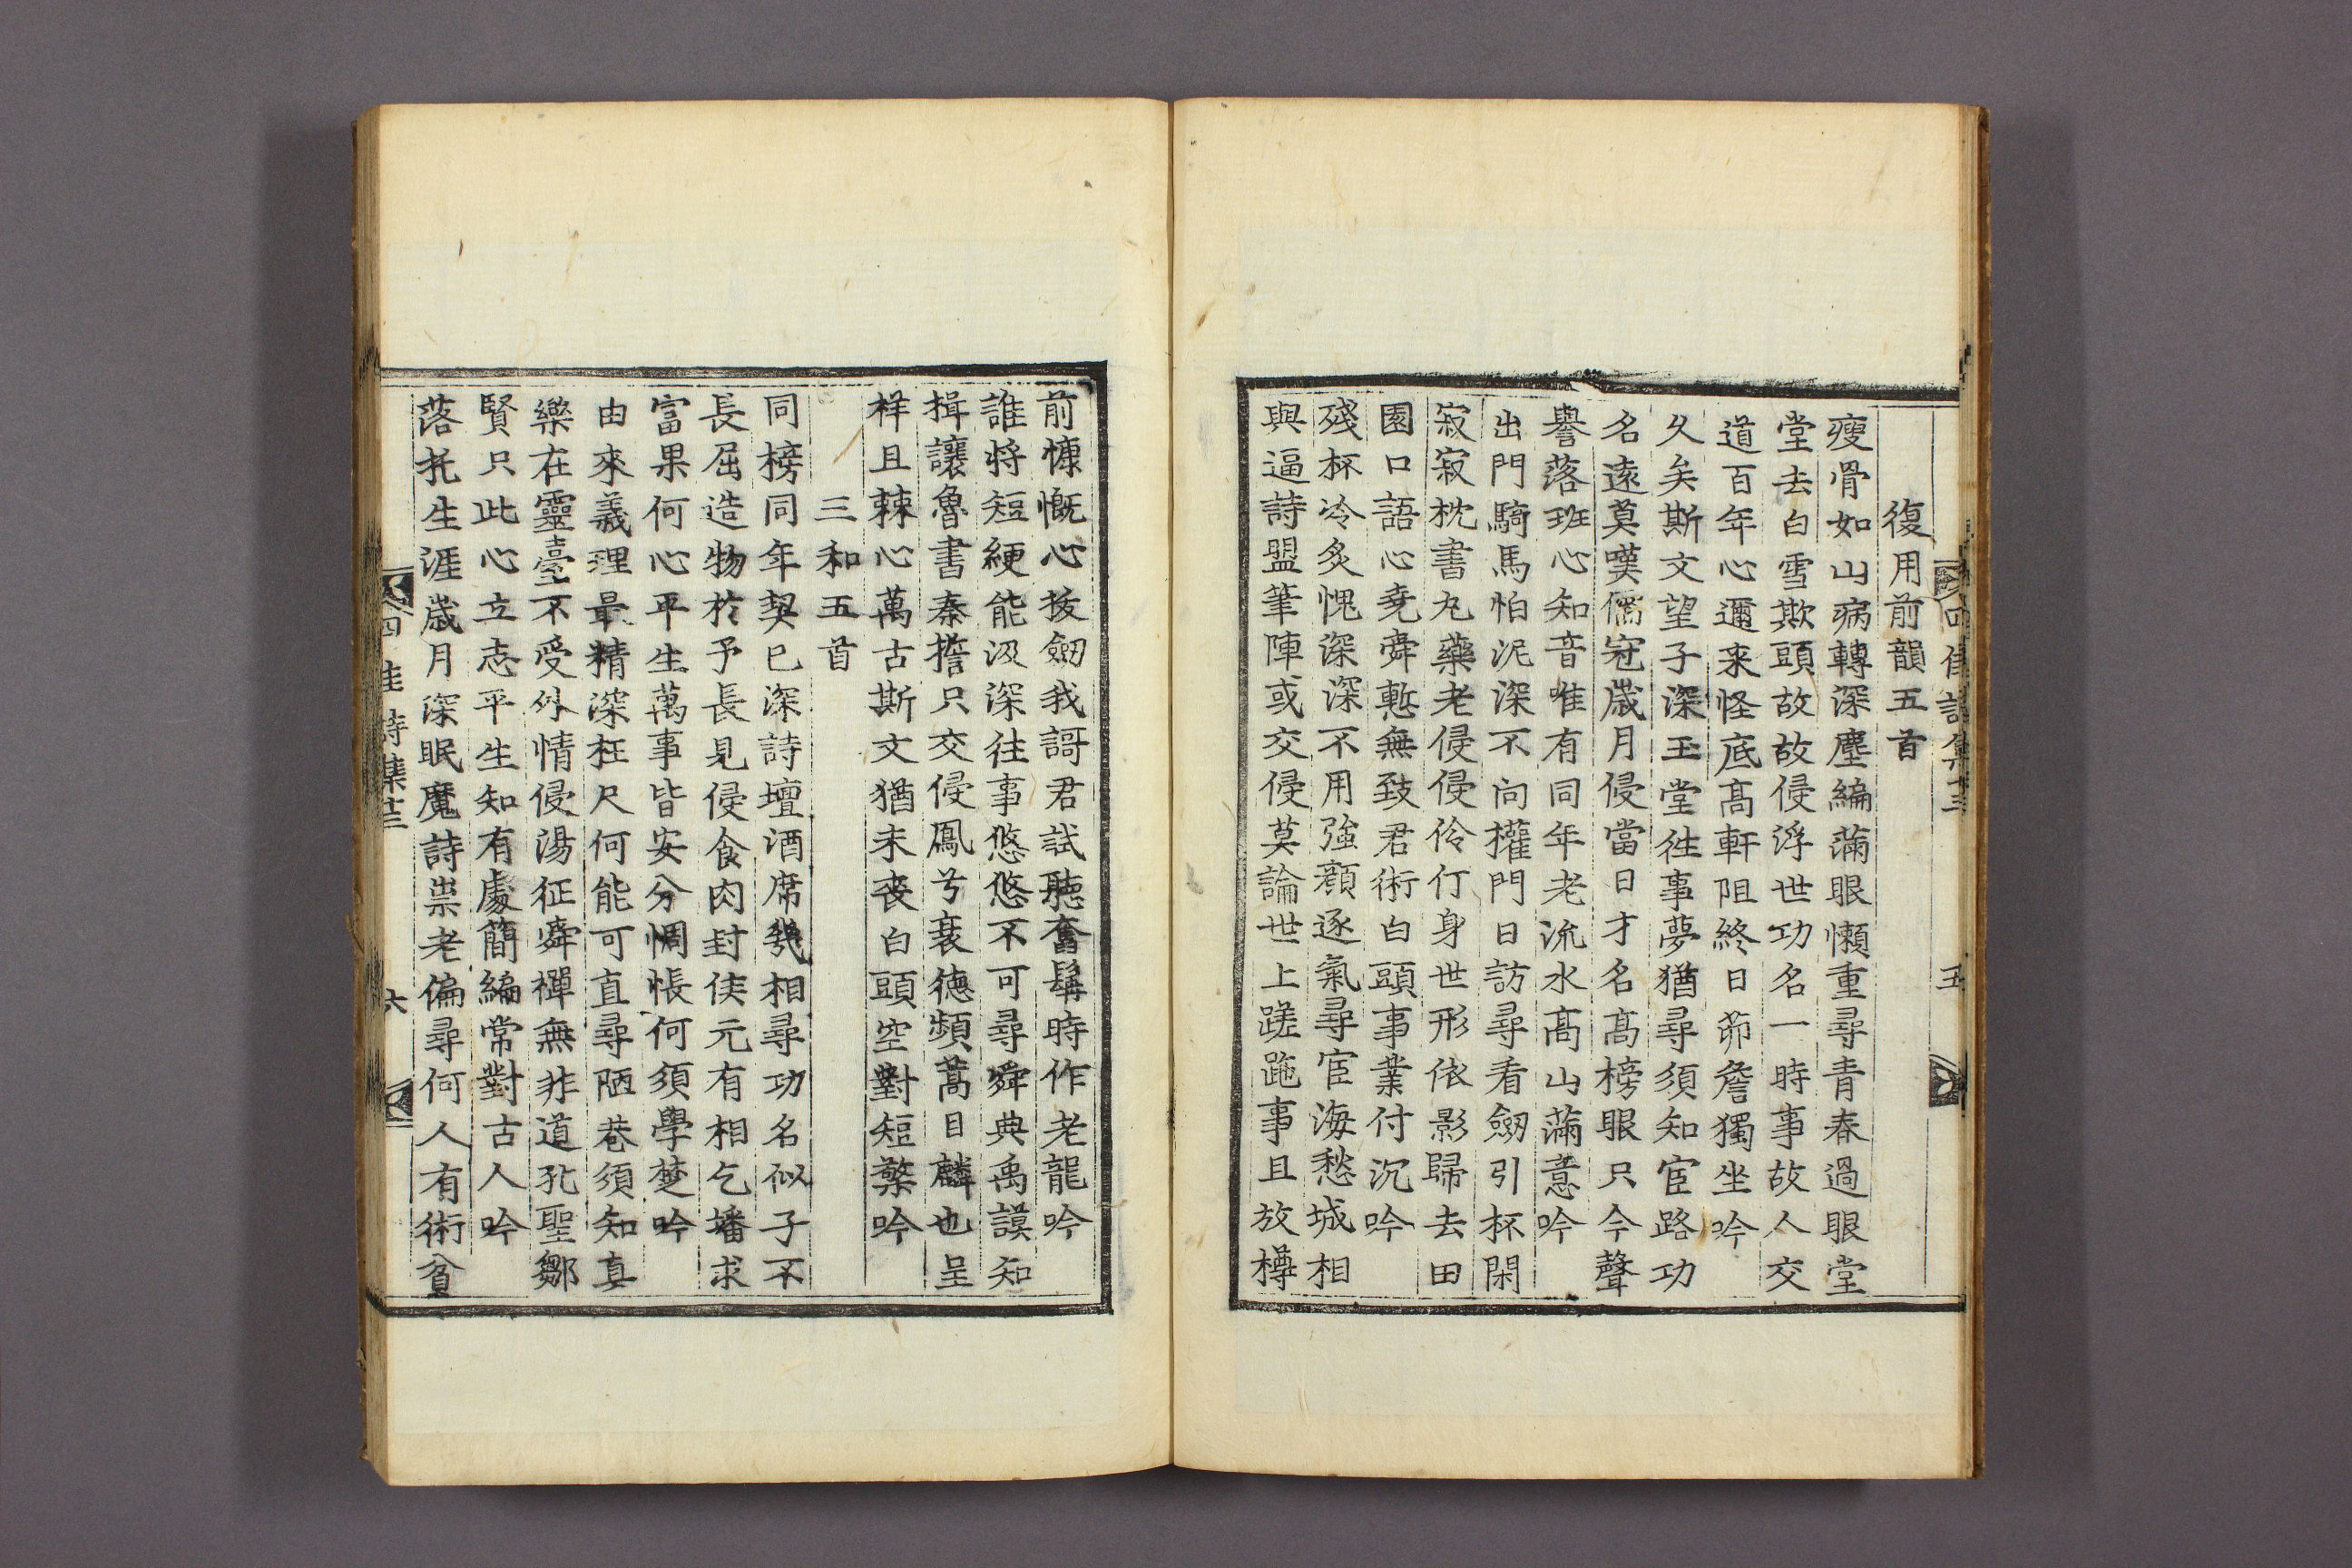 復用前韻五首
瘦骨如山病轉深塵編滿眼懶重尋青春過眼堂
堂去白雪欺頭故故侵浮世功名一時事故人交
道百年心邇来怪底高軒阻終日茆簷獨坐吟
久矣斯文望子深玉堂徃事夢猶尋須知宦路功
名遠莫嘆儒冠歲月侵當日才名高榜眼只今聲
譽落班心知音唯有同年老流水高山滿意吟
出門騎馬怕泥深不向權門日訪尋看劒引杯閑
寂寂枕書丸藥老侵侵伶仃身世形依影歸去田
園口語心堯舜慙無致君術白頭事業付沉吟
殘杯冷炙愧深深不用強顔逐氣尋宦海愁城相
與逼詩盟筆陣或交侵莫論世上蹉跎事且放樽
前慷慨心拔劒我謌君試聽奮髯時作老龍吟
誰将短綆能汲深往事悠悠不可尋舜典禹謨知
揖讓魯書秦誓只交侵鳳兮衰德頻蒿目麟也呈
祥且棘心萬古斯文猶未喪白頭空對短檠吟
三和五首
同榜同年契已深詩壇酒席幾相尋功名似子不
長屈造物於予長見侵食肉封侯元有相乞墦求
富果何心平生萬事皆安分惆悵何須學楚吟
由來義理最精深枉尺何能可直尋陋巷須知真
樂在靈臺不受外情侵湯征舜禪無非道孔聖鄒
賢只此心立志平生知有處簡編常對古人吟
落托生涯歲月深眠魔詩祟老偏尋何人有術貧
四佳詩集十三
六